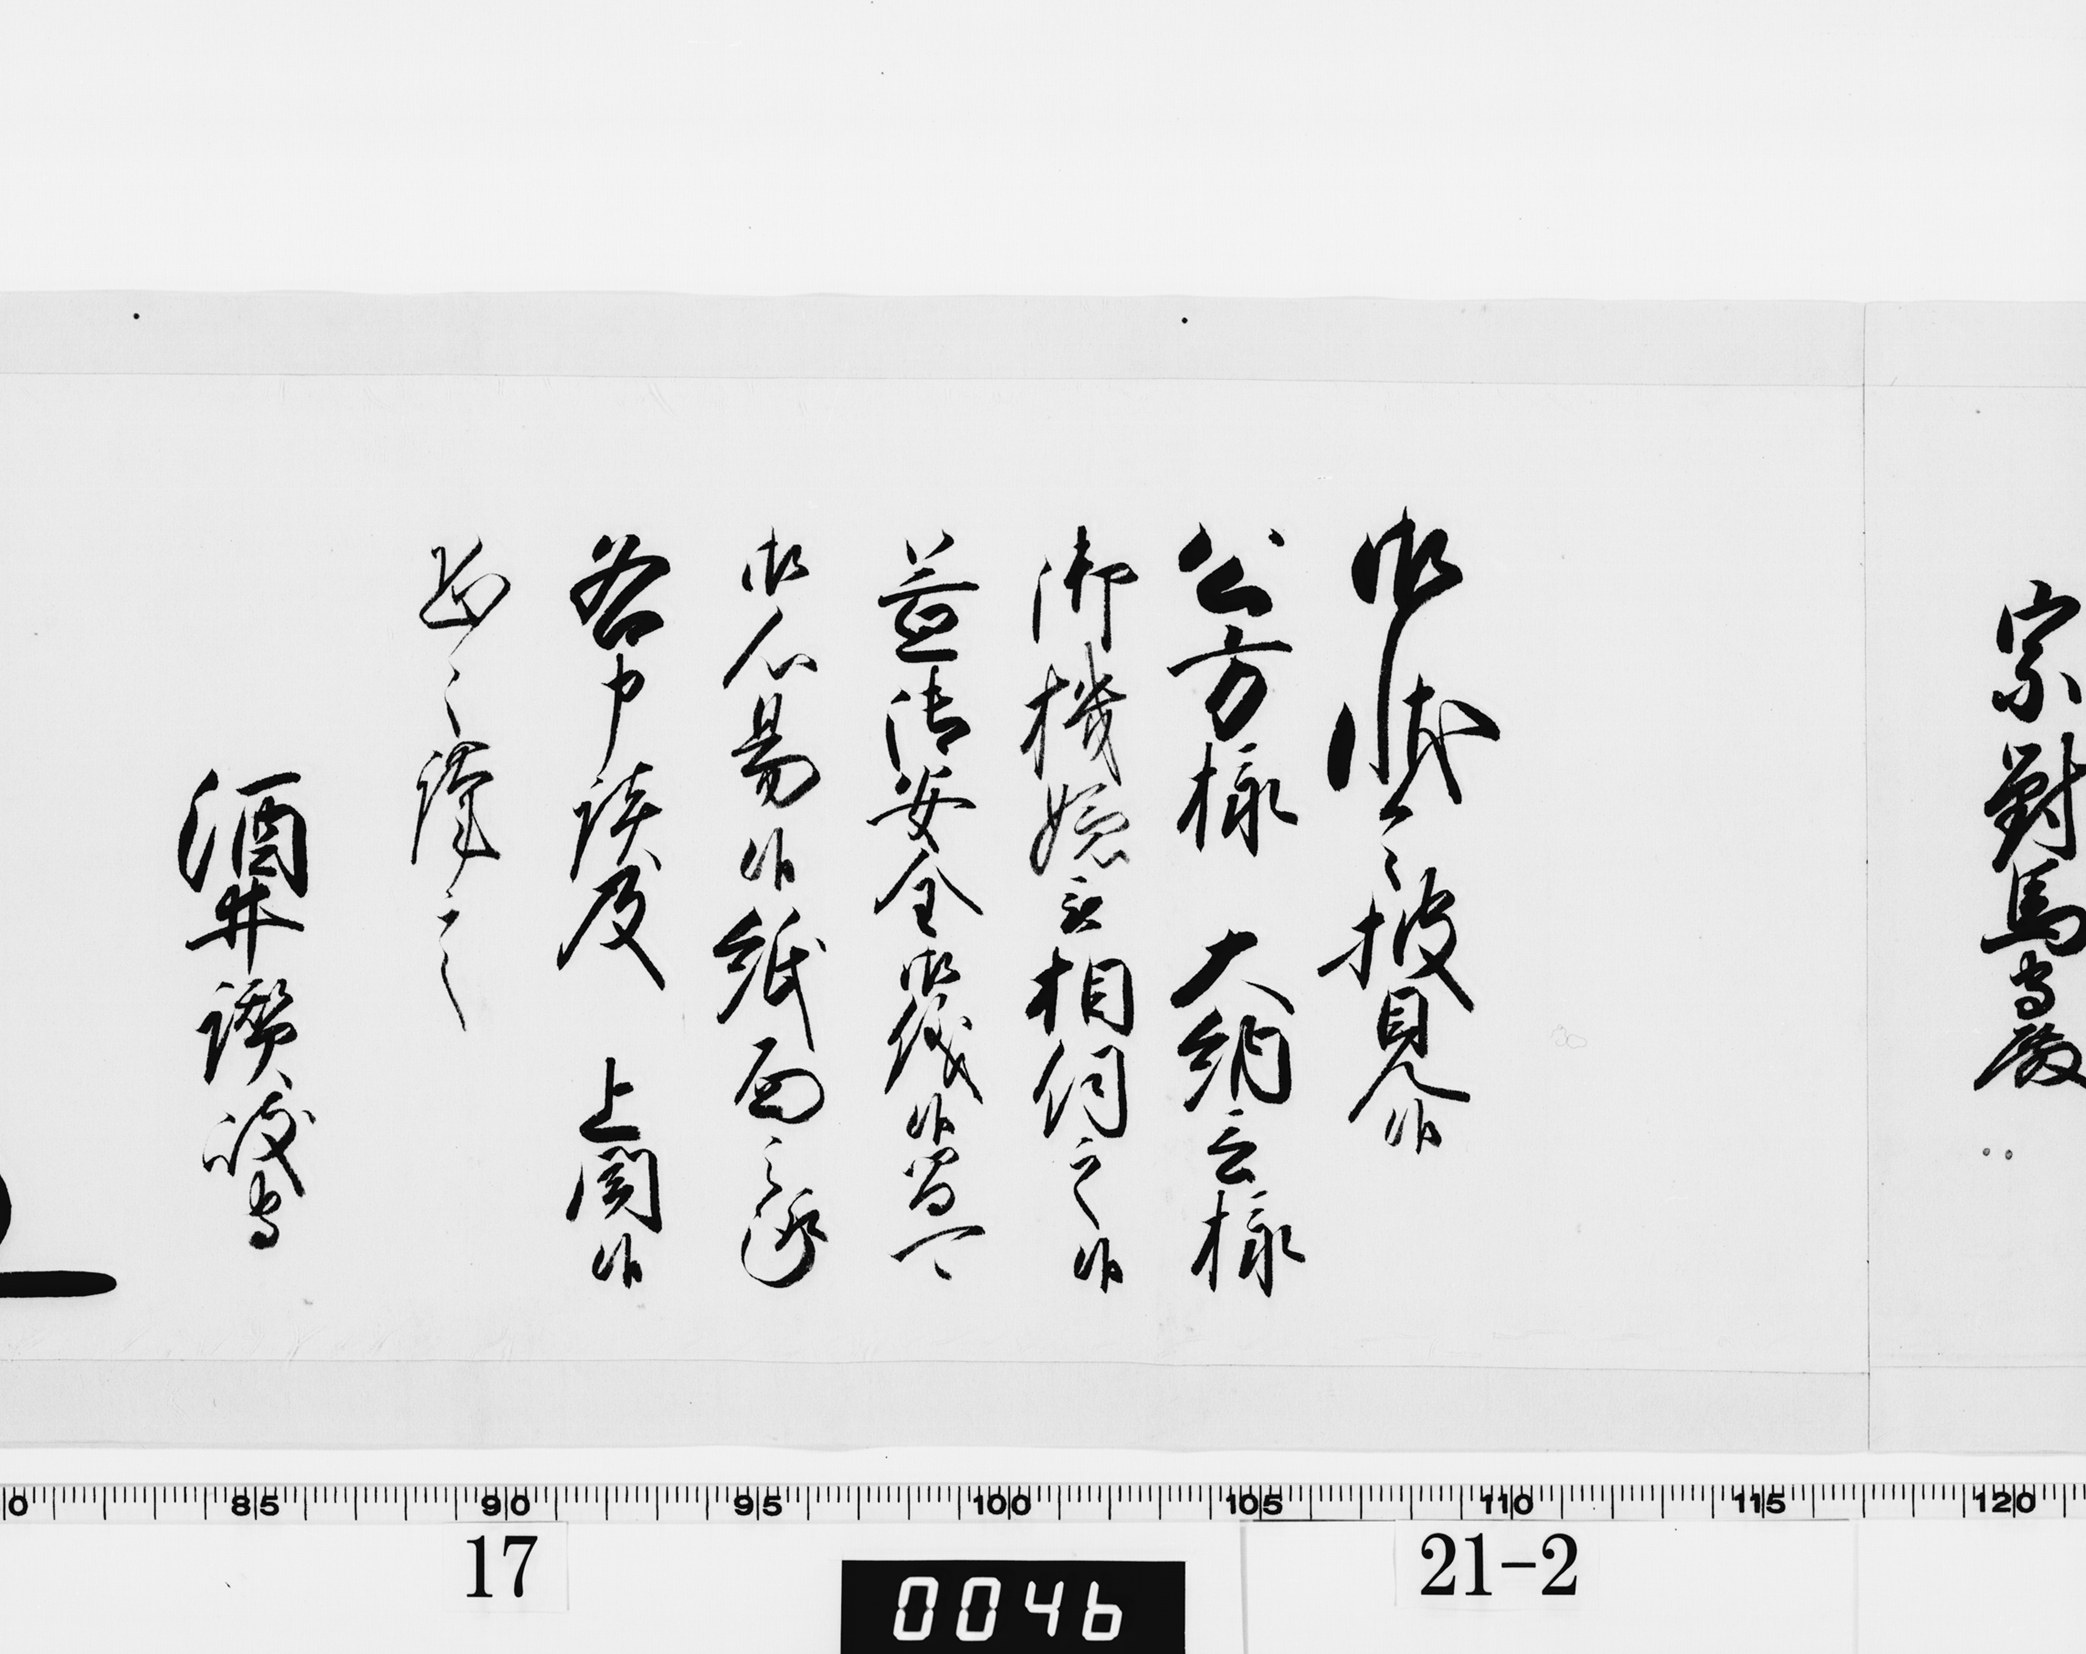 宗對馬守殿
御状令披見候
公方様 大納言様
御機嫌之相伺之候
益御安全御儀候間可
御心易候紙面之趣
各申談及 上聞候
恐々謹言
酒井讃岐守
0 85 90 95 100 105 110 115 120
17 0046 21-2